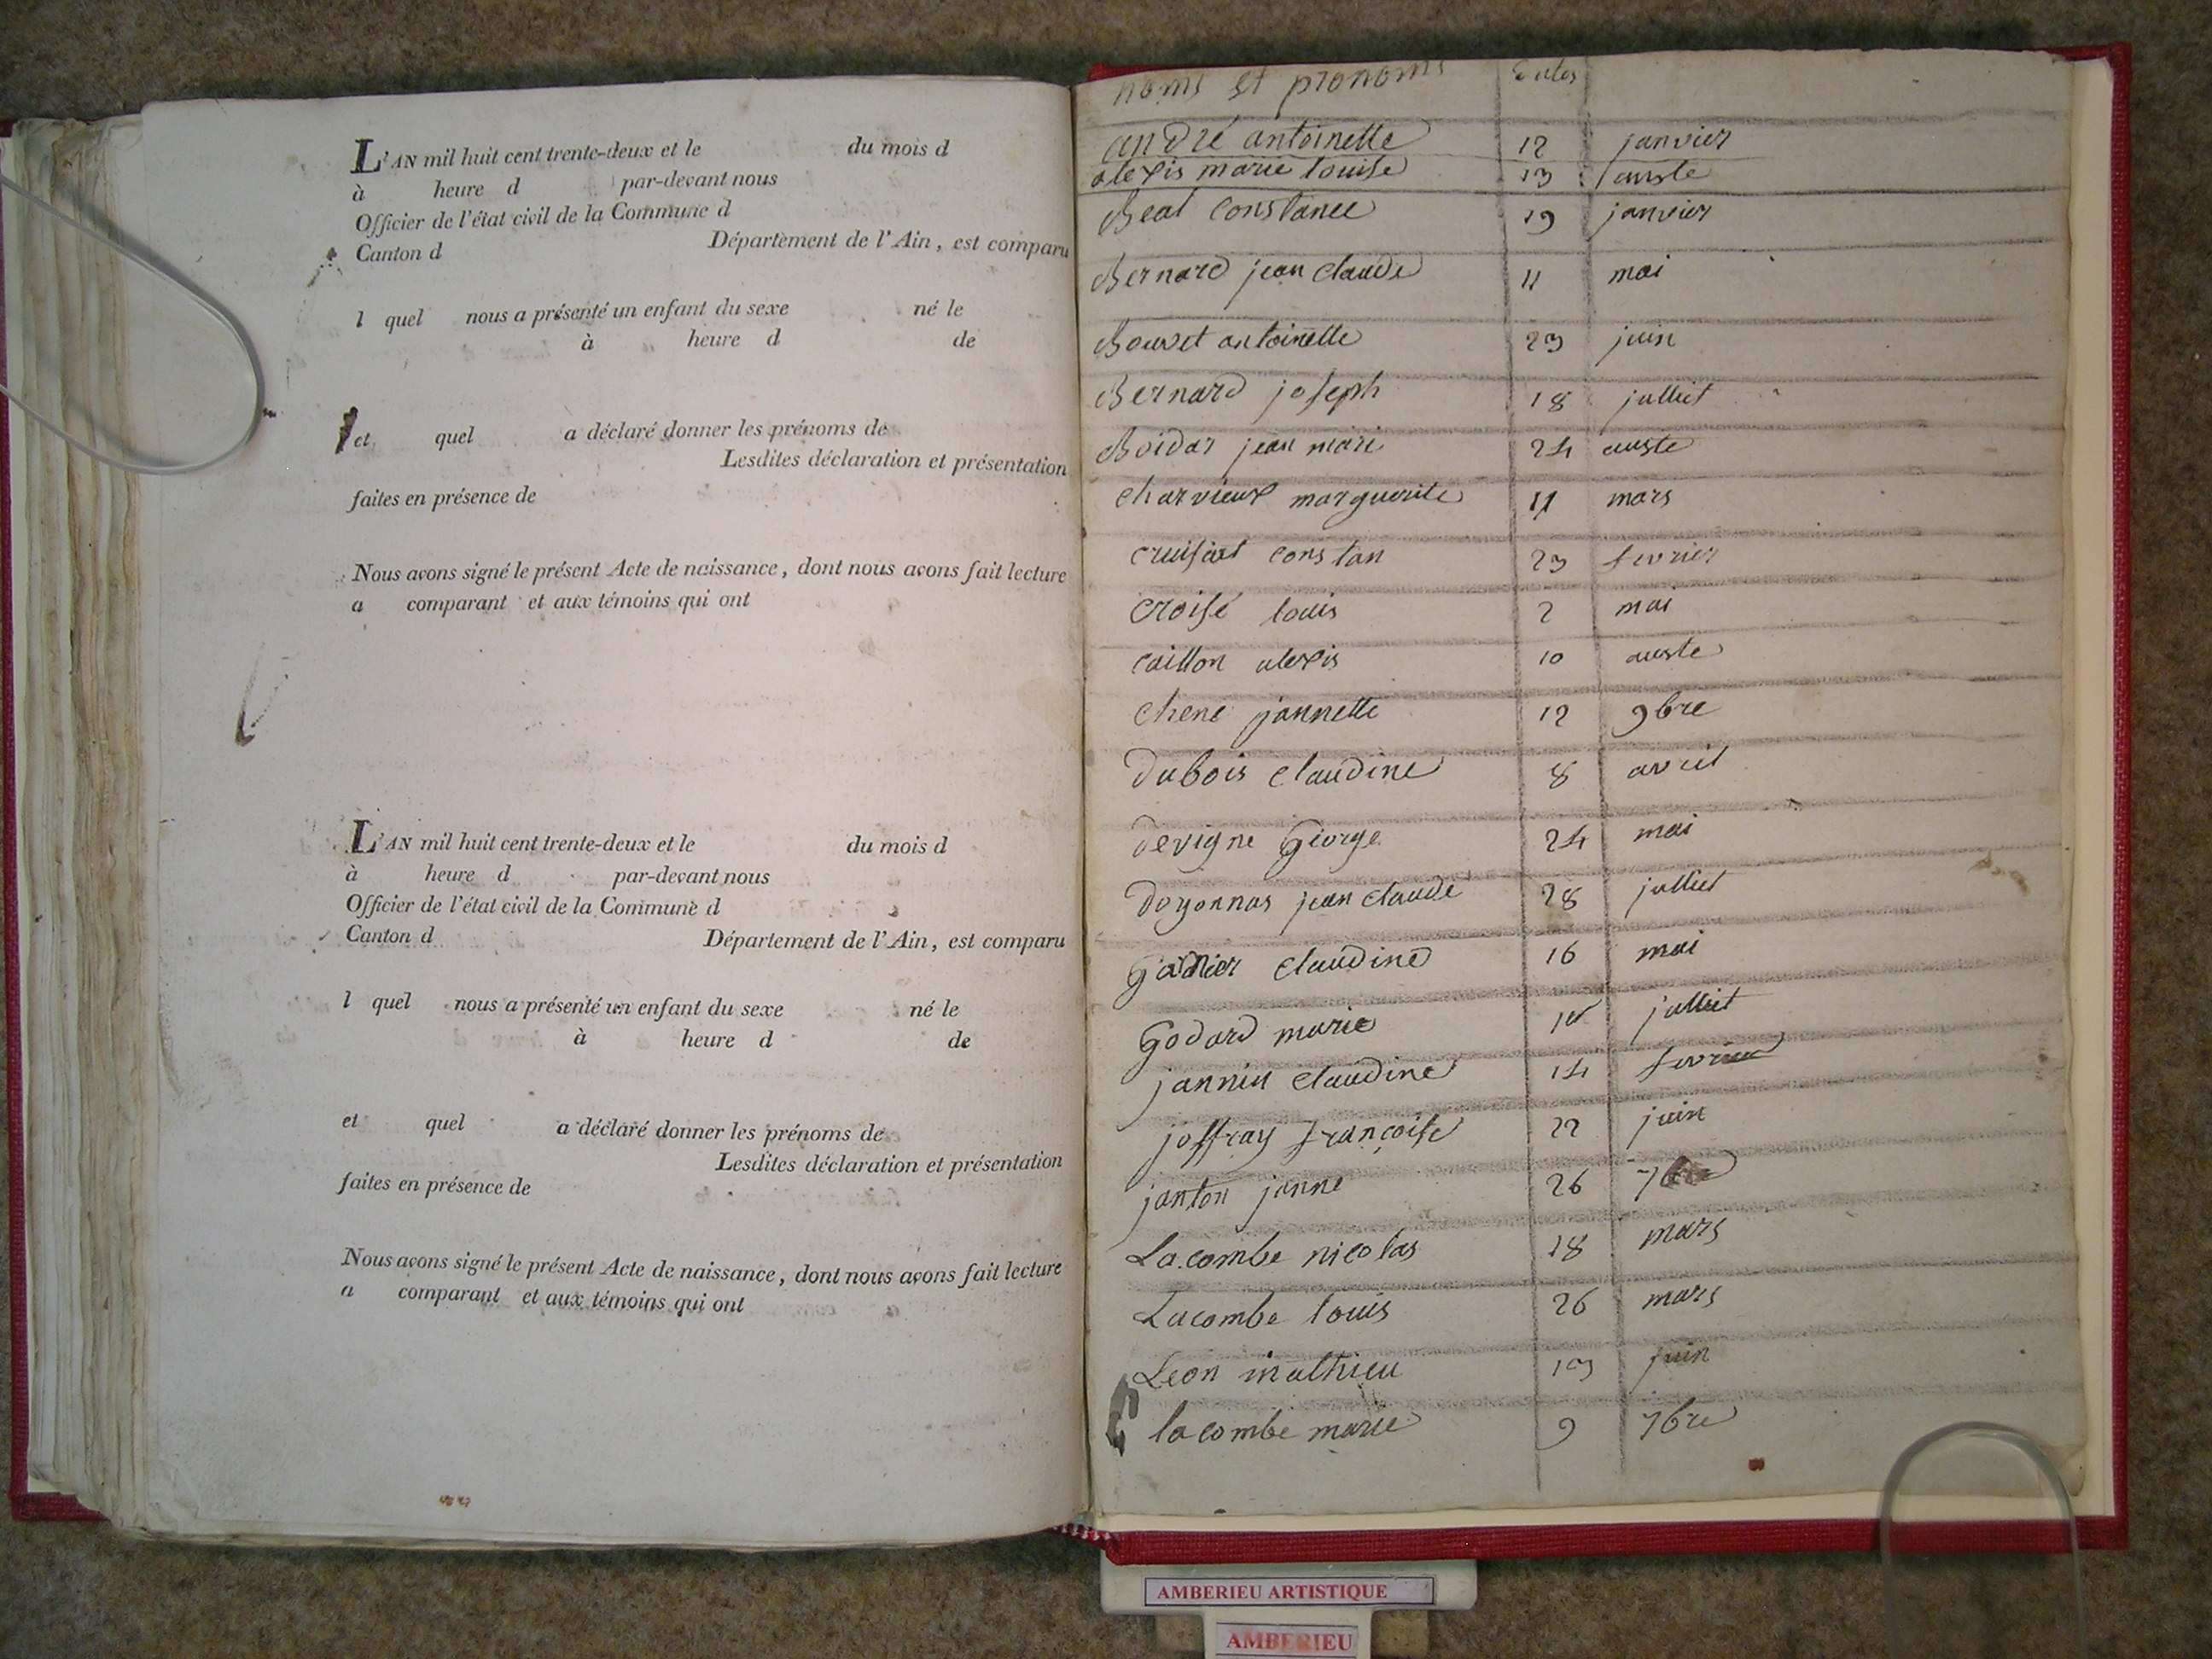 L'AN mil huit cent trente-deux et le du mois d
à heure d par-devant nous
Officier de l'état civil de la Commune d
Canton d Département de l'Ain, est comparu
l quel nous a présenté un enfant du sexe né le
à heure d de
et quel a déclaré donner les prénoms de
Lesdites déclaration et présentation
faites en présence de
Nous avons signé le présent Acte de naissance, dont nous avons fait lecture
a comparant et aux témoins qui ont
L'AN mil huit cent trente-deux et le du mois d
à heure d par-devant nous
Officier de l'état civil de la Commune d
Canton d Département de l'Ain, est comparu
l quel nous a présenté un enfant du sexe né le
à heure d de
et quel a déclaré donner les prénoms de
Lesdites déclaration et présentation
faites en présence de
Nous avons signé le présent Acte de naissance, dont nous avons fait lecture
a comparant et aux témoins qui ont
noms et pronoms dates
andré antoinette 12 janvier
alexis marie louise 13 auste
Beal constance 19 janvier
Bernard jean claude 11 mai
Bouvet antoinette 23 juin
Bernard joseph 18 julliet
Boidar jean mari 24 auste
charvieux marguerite 11 mars
constan 23 fevrier
croisé louis 2 mai
caillon alexis 10 auste
chene jannette 12 9bre
dubois claudine 8 avril
devigne George 24 mai
doyonnas jean claude 28 julliet
claudine 16 mai
Godard marie julliet
jannin claudine 14 fevrier
joffray françoise 22 juin
janton janne 26
Lacombe nicolas 18 mars
Lacombe louis 26 mars
Leon mathieu 19 juin
lacombe marie 9 7bre
AMBERIEU ARTISTIQUE
AMBERIEU